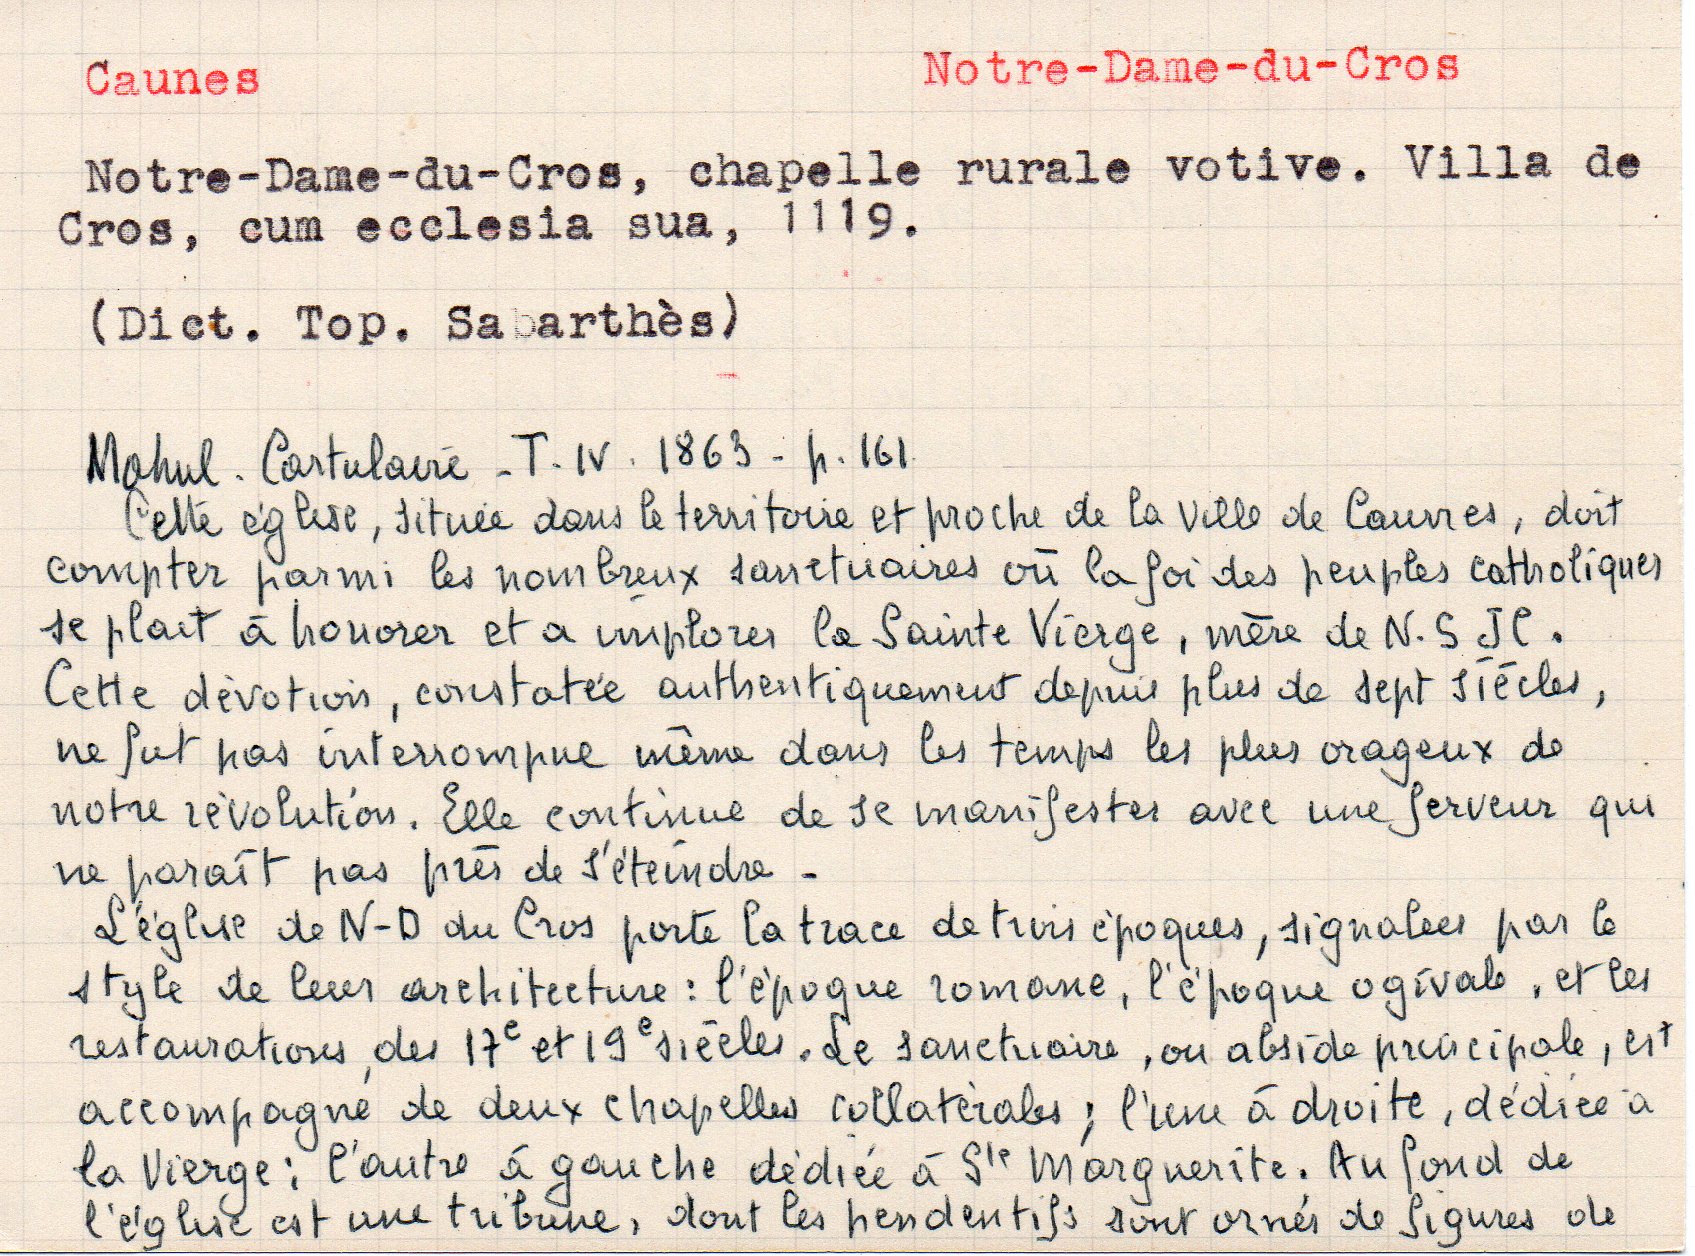 Caunes Notre-Dame-du-Cros
Notre-Dame-du-Cros, chapelle rurale votive. Villa de
Cros, cum ecclesia sua, 1119.
(Dict. Top. Sabarthès)
Mahul. Cartulaire - T. IV. 1863 - p. 161.
Cette église, située dans le territoire et proche de la ville de Caunes, doit
compter parmi les nombreux sanctuaires où la foi des peuples catholiques
se plait à honorer et a implorer la Sainte Vierge, mère de N. S JC.
Cette dévotion, constatée authentiquement depuis plus de sept siècles,
ne fut pas interrompue même dans les temps les plus orageux de
notre révolution. Elle continue de se manifester avec une ferveur qui
ne paraît pas près de s'éteindre -
L'église de N-D du Cros porte la trace de trois époques, signalées par le
style de leur architecture : l'époque romane, l'époque ogivale, et les
restaurations, des 17e et 19e siècles. Le sanctuaire, ou abside principale, est
accompagné de deux chapelles collatérales ; l'une à droite, dédiée à
la Vierge ; l'autre à gauche dédiée à Ste Marguerite. Au fond de
l'église est une tribune, dont les pendentifs sont ornés de figures de